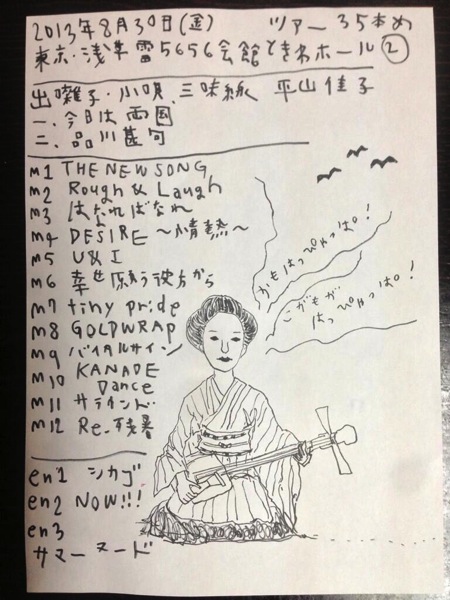 2013年8月30日(金) ツアー35本め
東京・浅草雷5656会館ときわホール②
出囃子・小唄、三味線 平山佳子
一、今日は両国
二、品川甚句
m1 THE NEW SONG
m2 Rough & Laugh
m3 はなればなれ
m4 DESIRE ～情熱～
m5 U & I
m6 幸せ願う彼方から
m7 tiny pride
m8 GOLDWRAP
m9 バイタルサイン
m10 KANADE
Dance
m11 サライント
m12 Re.残暑
en1 シカゴ
en2 NOW!!!
en3
サマーヌード
かもはっぴゃっぱ!
こがもが
はっぴゃっぱ!